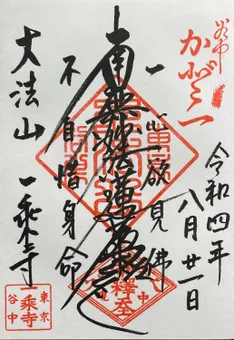 谷中
令和四年
八月廿一日
一心欲見佛
南無妙法蓮華経
不自惜身命
大法山 一乗寺
東京
一乗寺
谷中